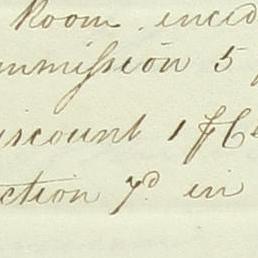 Room inced
mmission 5
iscount 1 ₱ Ce
ction 7d in